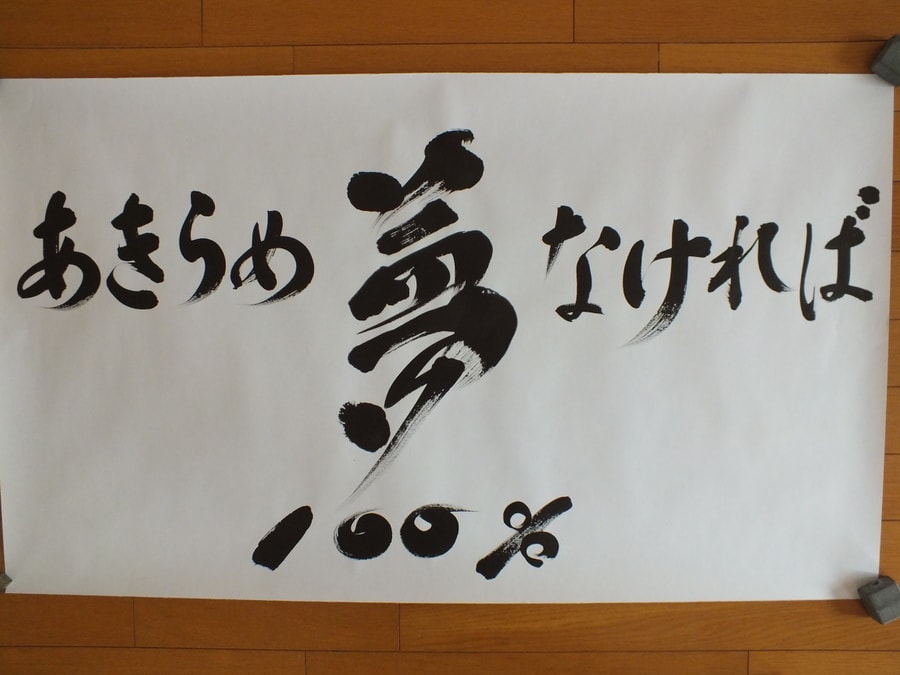 あきらめ夢なければ
100%